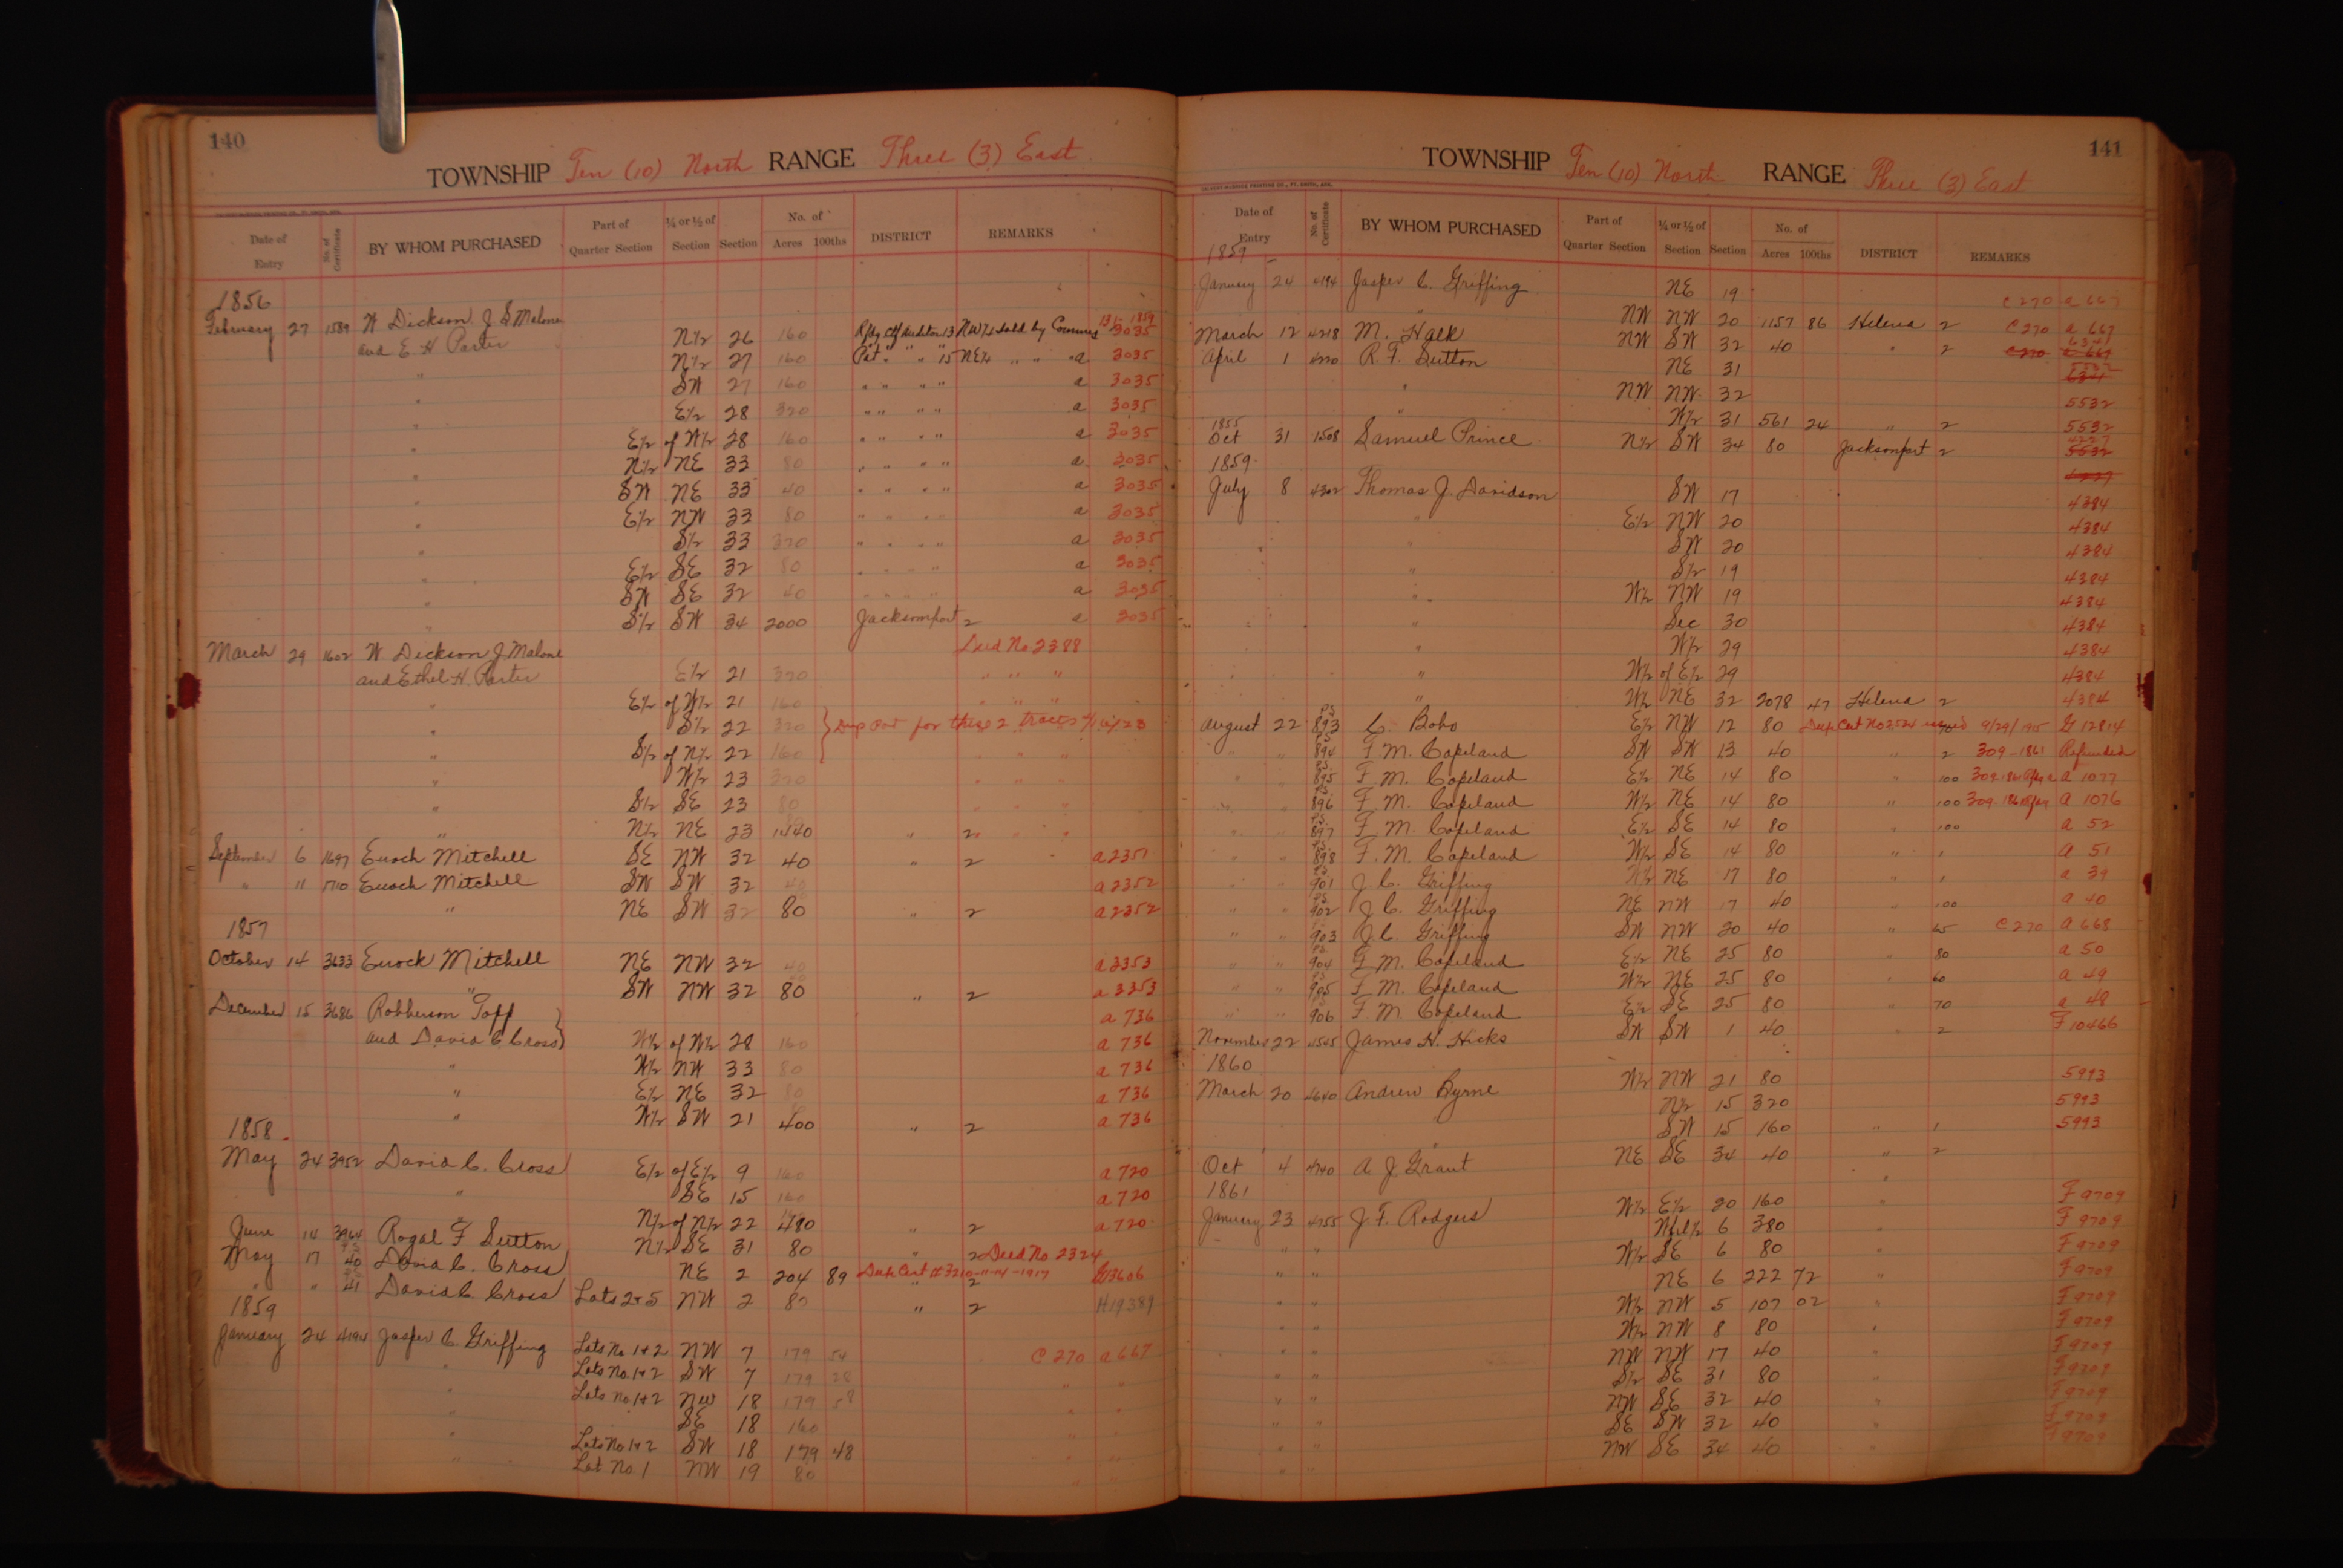 140
TOWNSHIP Ten (10) North RANGE Three (3) East
Date of Entry No. of Certificate BY WHOM PURCHASED Part of Quarter Section ¼ or ½ of Section Section No. of Acres 100ths DISTRICT REMARKS
1856
February 27 1589 W Dickson J S Malone
and E H Porter N½ 26 160 3035
" N½ 27 160 a 3035
" SW 27 160 " " " " a 3035
" E½ 28 320 " " " " a 3035
" E½ of W½ 28 160 " " " " a 3035
" N½ NE 33 80 " " " " a 3035
" SW NE 33 40 " " " " a 3035
" E½ NW 33 80 " " " " a 3035
" S½ 33 320 " " " " a 3035
" E½ SE 32 80 " " " " a 3035
" SW SE 32 40 " " " " a 3035
" S½ SW 34 2000 Jacksonport 2 a 3035
March 29 1602 W Dickson J Malone Deed No 2388
and Ethel H. Porter E½ 21 320 " " "
" E½ of W½ 21 160 " " "
" S½ 22 320 } Dup Pat for these 2 tracts
" S½ of N½ 22 160 " " "
" W½ 23 320 " " "
" S½ SE 23 80 " " "
" N½ NE 23 1440 " 2 " " "
September 6 1697 Enoch Mitchell SE NW 32 40 " 2 a 2351
" 11 1710 Enoch Mitchell SW SW 32 40 a 2352
" NE SW 32 80 " 2 a 2352
1857
October 14 3633 Enock Mitchell NE NW 32 40 a 2353
" SW NW 32 80 " 2 a 2353
December 15 3686 Robberson Topp a 736
and David C. Cross} W½ of W½ 28 160 a 736
" W½ NW 33 80 a 736
" E½ NE 32 80 a 736
" W½ SW 21 400 " 2 a 736
1858
May 24 3952 David C. Cross E½ of E½ 9 160 a 720
" SE 15 160 a 720
" N½ of N½ 22 480 " 2 a 720
June 14 3964 Rogal F Sutton N½ SE 31 80 " 2 Deed No 2324
May 17 40 David C. Cross NE 2 204 89 Dup. Cert # 3210-11-14-1917 2 G13606
" " 41 David C. Cross Lots 2+5 NW 2 80 " 2 H19389
1859
January 24 4194 Jasper C. Griffing Lots No 1+2 NW 7 179 54 C 270 a 667
" Lots No. 1+2 SW 7 179 28 " "
" Lots No. 1+2 NW 18 179 58 " "
" SE 18 160 " "
" Lots No 1+2 SW 18 179 48 " "
" Lot No 1 NW 19 80 " "
141
TOWNSHIP Ten (10) North RANGE Three (3) East
Date of Entry No. of Certificate BY WHOM PURCHASED Part of Quarter Section ¼ or ½ of Section Section No. of Acres 100ths DISTRICT REMARKS
1859
January 24 4194 Jasper C. Griffing NE 19 C 270 a 667
NW NW 20 1157 86 Helena 2 C 270 a 667
March 12 4218 M. Halk NW SW 32 40 " 2 6341
April 1 4220 R. F. Sutton NE 31
" NW NW 32 5532
" W½ 31 561 24 " 2 5532
1855
Oct 31 1508 Samuel Prince N½ SW 34 80 Jacksonport 2 4227
1859
July 8 4302 Thomas J. Davidson SW 17 4384
" E½ NW 20 4384
" SW 20 4384
" S½ 19 4384
" W½ NW 19 4384
" Sec 30 4384
" W½ 29 4384
" W½ of E½ 29 4384
" W½ NE 32 2078 47 Helena 2 4384
August 22 893 C. Bobo E½ NW 12 80 Dup Cert No 2524 issued 9/29/1915 G 12814
" " 894 F M. Copeland SW SW 13 40 " 2 309-1861 Refunded
" " 895 F. M. Copeland E½ NE 14 80 " 100 a 1077
" " 896 F. M. Copeland W½ NE 14 80 " 100 a 1076
" " 897 F M. Copeland E½ SE 14 80 " 100 a 52
" " 898 F. M. Copeland W½ SE 14 80 " 1 a 51
" " 901 J. C. Griffing W½ NE 17 80 " 1 a 39
" " 902 J C. Griffing NE NW 17 40 " 100 a 40
" " 903 J C. Griffing SW NW 20 40 " 65 C 270 a 668
" " 904 F M. Copeland E½ NE 25 80 " 80 a 50
" " 905 F M. Copeland W½ NE 25 80 " 60 a 49
" " 906 F M. Copeland E½ SE 25 80 " 70 a 48
November 22 4545 James H. Hicks SW SW 1 40 " 2 F 10466
1860
March 20 4640 Andrew Byrne W½ NW 21 80 5993
N½ 15 320 5993
" SW 15 160 " 1 5993
Oct 4 4740 A. J Grant NE SE 34 40 " 2
1861
January 23 4755 J. F. Rodgers W½ E½ 20 160 " F 9709
" " 6 380 " F 9709
" " W½ SE 6 80 " F 9709
NE 6 222 72 " F 9709
" " W½ NW 5 107 02 " F 9709
" " W½ NW 8 80 " F 9709
" " NW NW 17 40 " F 9709
" " S½ SE 31 80 " F 9709
" " NW SE 32 40 " F 9709
" " SE SW 32 40 " F 9709
" " NW SE 34 40 " F 9709